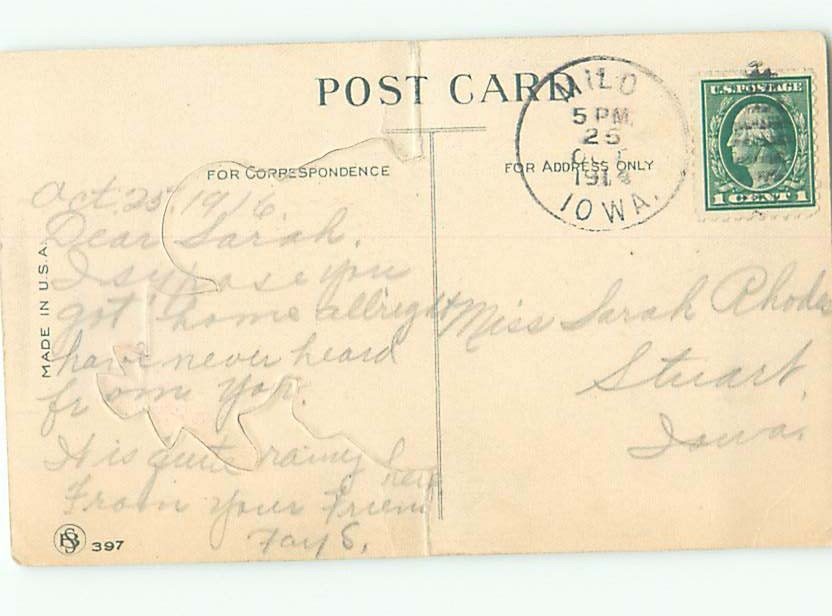 POST CARD
FOR CORRESPONDENCE
FOR ADDRESS ONLY
MILO
5 PM
25
OCT
IOWA.
U.S. POSTAGE
1 CENT 1
MADE IN U.S.A.
Oct. 25, 1916.
Dear Sarah.
I supose you
got home allright
have never heard
from you.
It is quite rainy here
From your Friend
Fay S.
Miss Sarah Rhodes
Stuart,
Iowa.
397